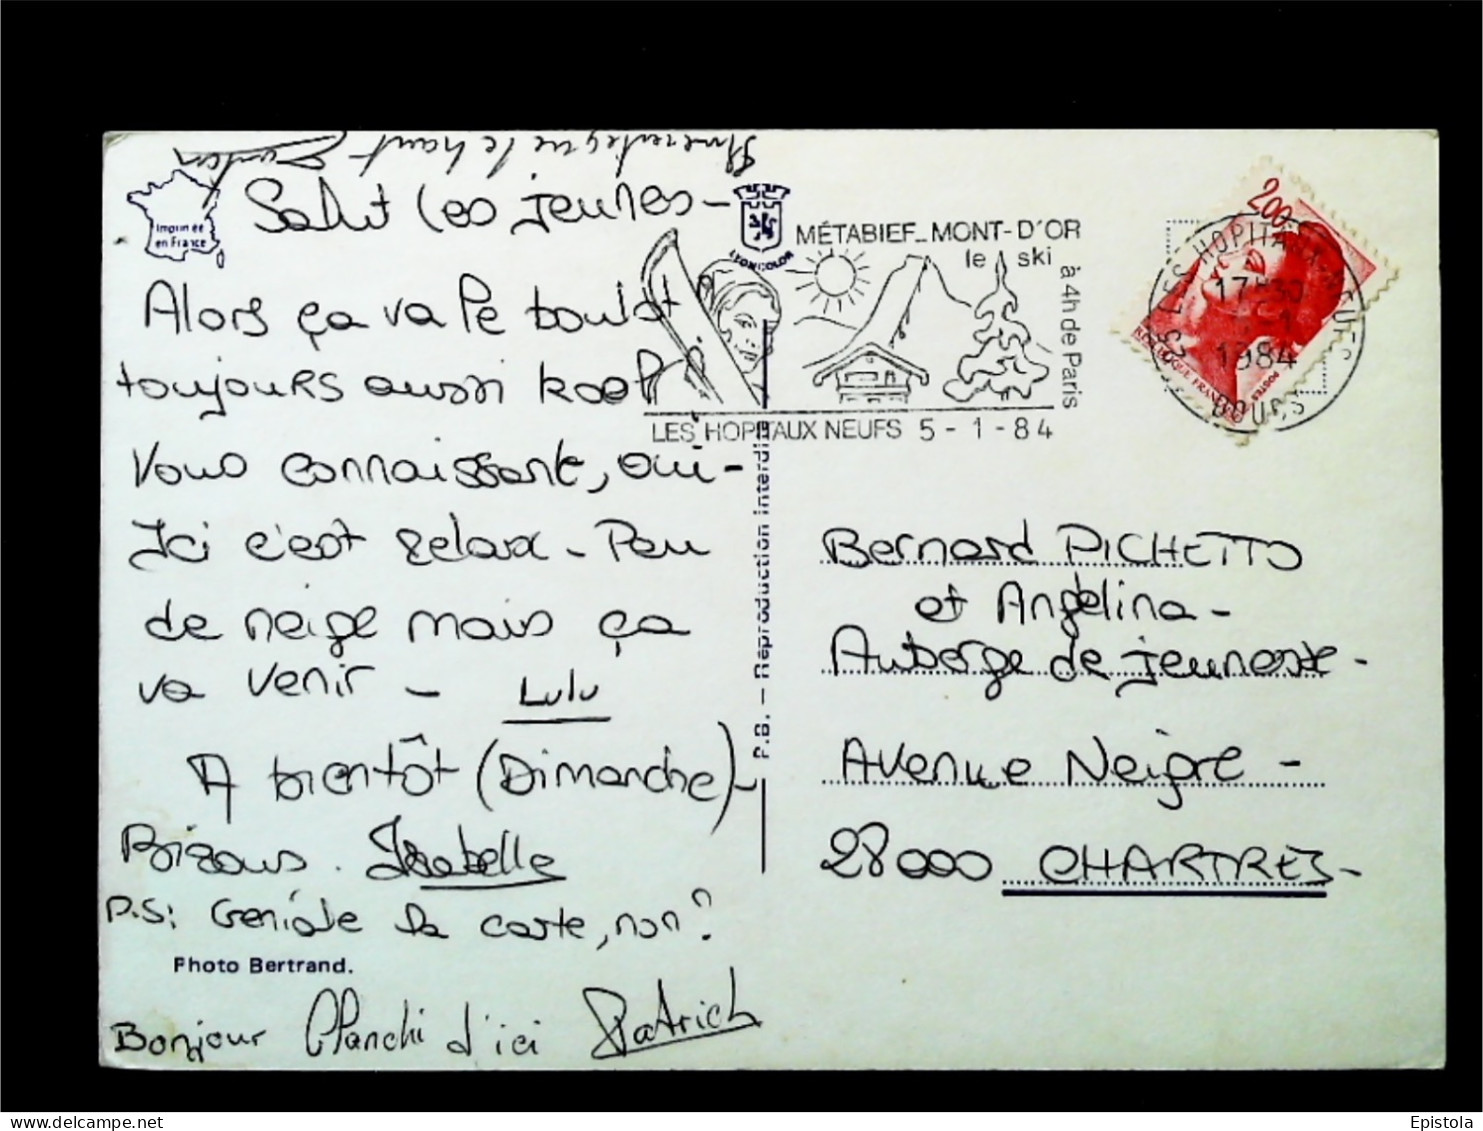 Salut les jeunes-
Alors ça va le boulot
toujours aussi kool?
Vous connaissant, oui-
Ici c'est relax - Peu
de neige mais ça
va venir - Lulu
A bientôt (Dimanche)-
Bizous. Isabelle
P.S: Géniale la carte, non?
Photo Bertrand.
Bonjour d'ici Patrick
Imprimée
en France
LYONCOLOR
P.B. - Reproduction interdite
MÉTABIEF_MONT-D'OR
le ski
à 4h de Paris
LES HOPITAUX NEUFS 5-1-84
25 LES HOPITAUX-NEUFS
17H30
1984
DOUBS
2,00
REPUBLIQUE FRANÇAISE
POSTES
Bernard PICHETTO
et Angélina-
Auberge de jeunesse-
Avenue Neigre-
28000 CHARTRES-
hosted by www.delcampe.net
Epistola